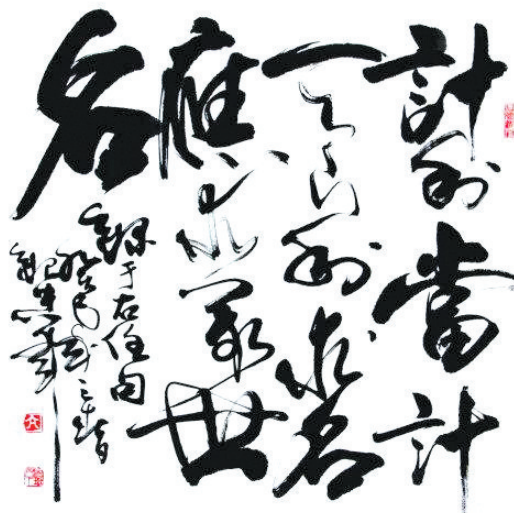 計利當計
天下利求名
應求萬世
名
錄于右任句